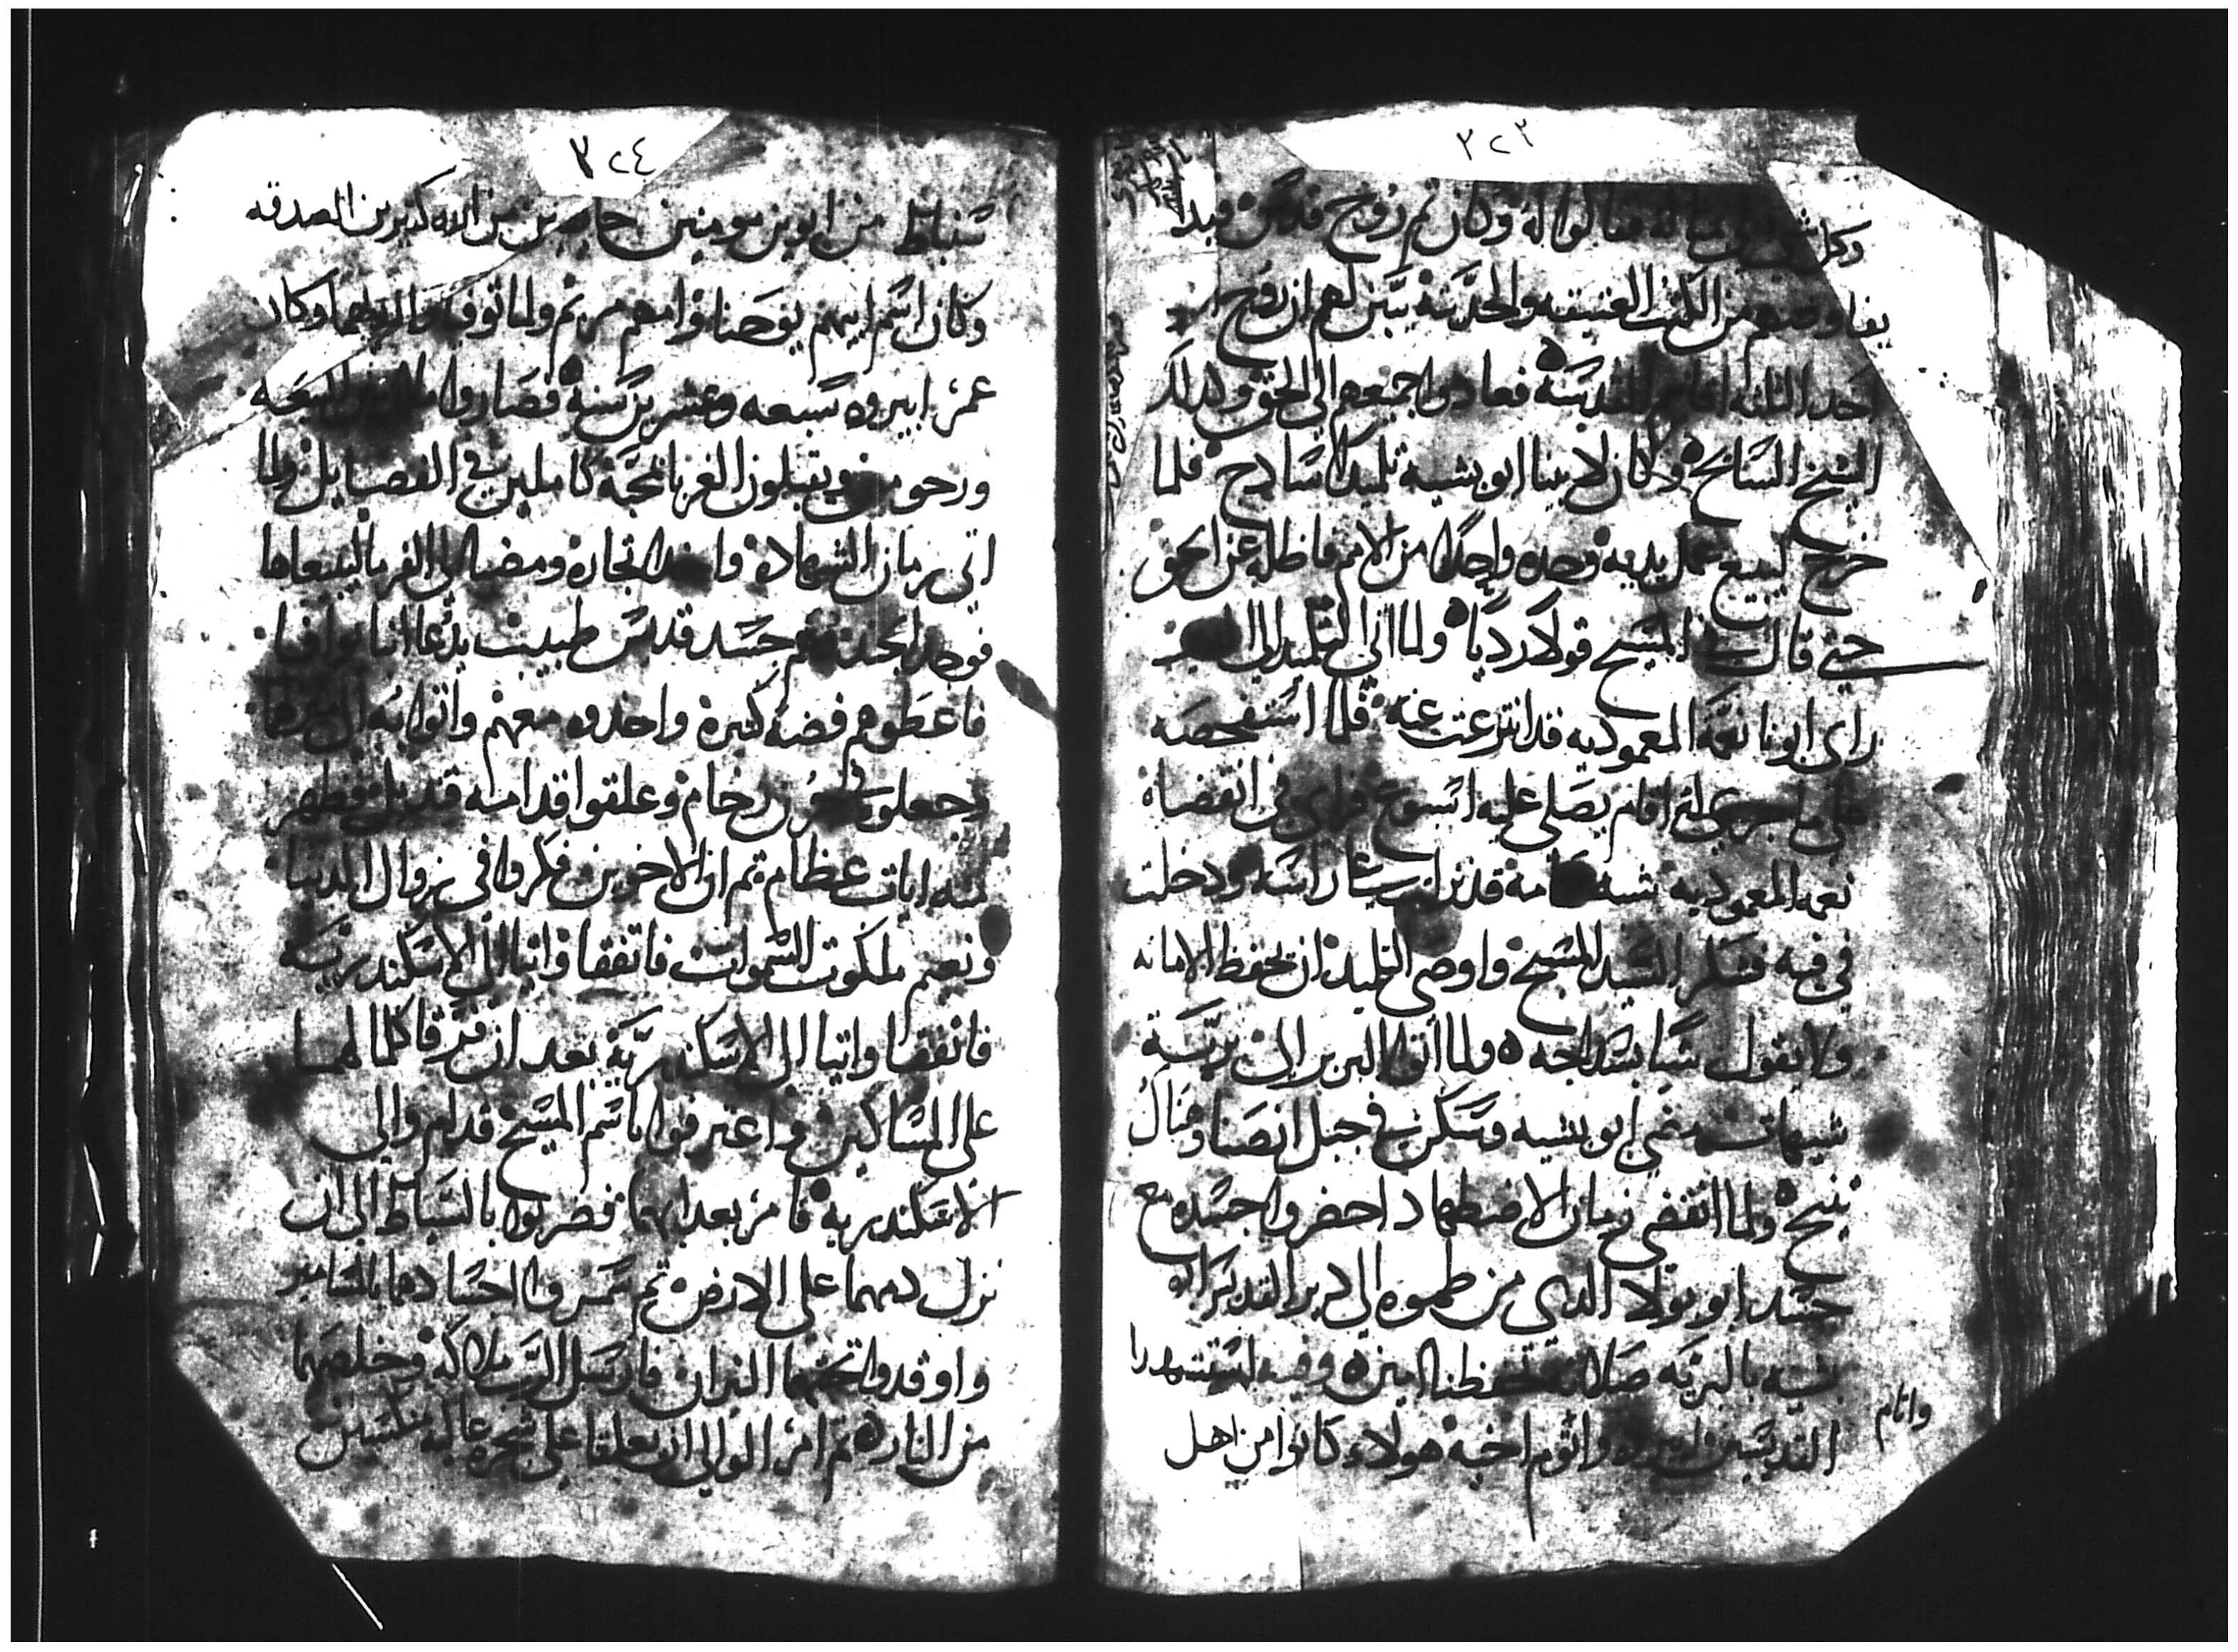 ٣٢٣
وكل شي في مقاله فقالوا له وكان ثم روح قدس فبدا
يفاوضهم من الكتب العتيقه والحديثه يبين لهم ان روح
احد الثلثه اقانيم المقدسه فعادوا جميعهم الي الحق ولدلك
الشيخ السايح وكان لابينا ابو بشيه تلميدا سادج فلما
خرج ليبيع عمل يديه وجد واحدا من الامم فاظله عن الحق
حتي قال في المسيح قولا رديا ولما اتي التلميد الي
راي ابونا نعمة المعموديه قد انتزعت عنه فلما استفحصه
علي ما جري اقام يصلي عليه اسبوع فراي في انقضاه
نعمة المعموديه شبه حمامه قد نزلت راسه ودخلت
في فيه فشكر السيد المسيح واوصي التلميد ان يحفظ الامانه
ولا يقول شيا بسداجه ولما اتوا البربر الي بريّة
شيهات مضي ابو بشيه وسكن في جبل انصنا وهناك
تنيح ولما انقضي زمان الاضطهاد احضروا جسده مع
جسد ابو بولا الدي من طموه الي دير القديس ابو
بشيه بالبريه صلاته تحفظنا امين وفيه استشهدا
القديسين واتوم اخيه هولاء كانوا من اهل
واتام
٣٢٤
شنباط من ابوين مومنين خايفين من الله كتيرين الصدقه
وكان اسم ابيهم يوحنا وامهم مريم ولما توفا والديهما وكان
عمر ابيروه سبعه وعشرين سنه فصاروا ملازمين البيعه
ورحومين ويقبلون الغربا بمحبة كاملين في الفضايل ولما
اتي زمان الشهاده واخدا تجاره ومضيا الي الفرما ليبيعاها
فوجدا الجند معهم جسد قديس طبيب يدعا انبا نوافا
فاعطوهم فضة كتيرة واخدوه معهم واتوا به الي منزلهما
وجعلوه في جرن رخام وعلقوا قدامه قنديل وظهر
منه ايات عظام ثم ان الاخوين فكروا في زوال الدنيا
ونعيم ملكوت السموات فاتفقا واتيا الي الاسكندرية
فاتفقا واتيا الي الاسكندرية بعد ان فرقا كلما لهما
علي المساكين واعترفوا باسم المسيح قدام والي
الاسكندريه فامر بعدابهما فضربوا بالسياط الي ان
نزل دمهما علي الارض ثم سمروا اجسادهما بالمسامير
واوقدوا تحتهما النيران فارسل الرب ملاكه وخلصهما
من النار ثم امر الوالي ان يعلقا علي شجره عاليه منكسين